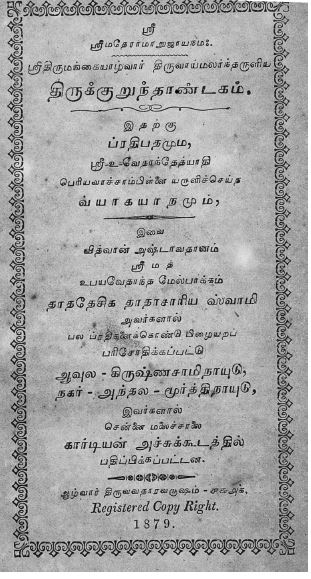 ஸ்ரீ
ஸ்ரீமதேராமாநுஜாயநம:.
ஸ்ரீதிருமங்கையாழ்வார் திருவாய்மலர்ந்தருளிய
திருக்குறுந்தாண்டகம்.
இதற்கு
ப்ரதிபதமும்,
ஸ்ரீ-உ-வேதாந்தேத்யாதி
பெரியவாச்சாம்பிள்ளை யருளிச்செய்த
வ்யாக்யாநமும்,
இவை
வித்வான் அஷ்டாவதானம்
ஸ்ரீ மத்
உபயவேதாந்த மேல்பாக்கம்
தாததேசிக தாதாசாரிய ஸ்வாமி
அவர்களால்
பல ப்ரதிகளைக்கொண்டு பிழையறப்
பரிசோதிக்கப்பட்டு
ஆவுல - கிருஷ்ணசாமிநாயுடு,
நகர் - அந்தல - மூர்த்திநாயுடு,
இவர்களால்
சென்னை மலைச்சாலை
கார்டியன் அச்சுக்கூடத்தில்
பதிப்பிக்கப்பட்டன.
ஆழ்வார் திருவவதாரவருஷம் -
Registered Copy Right.
1879.